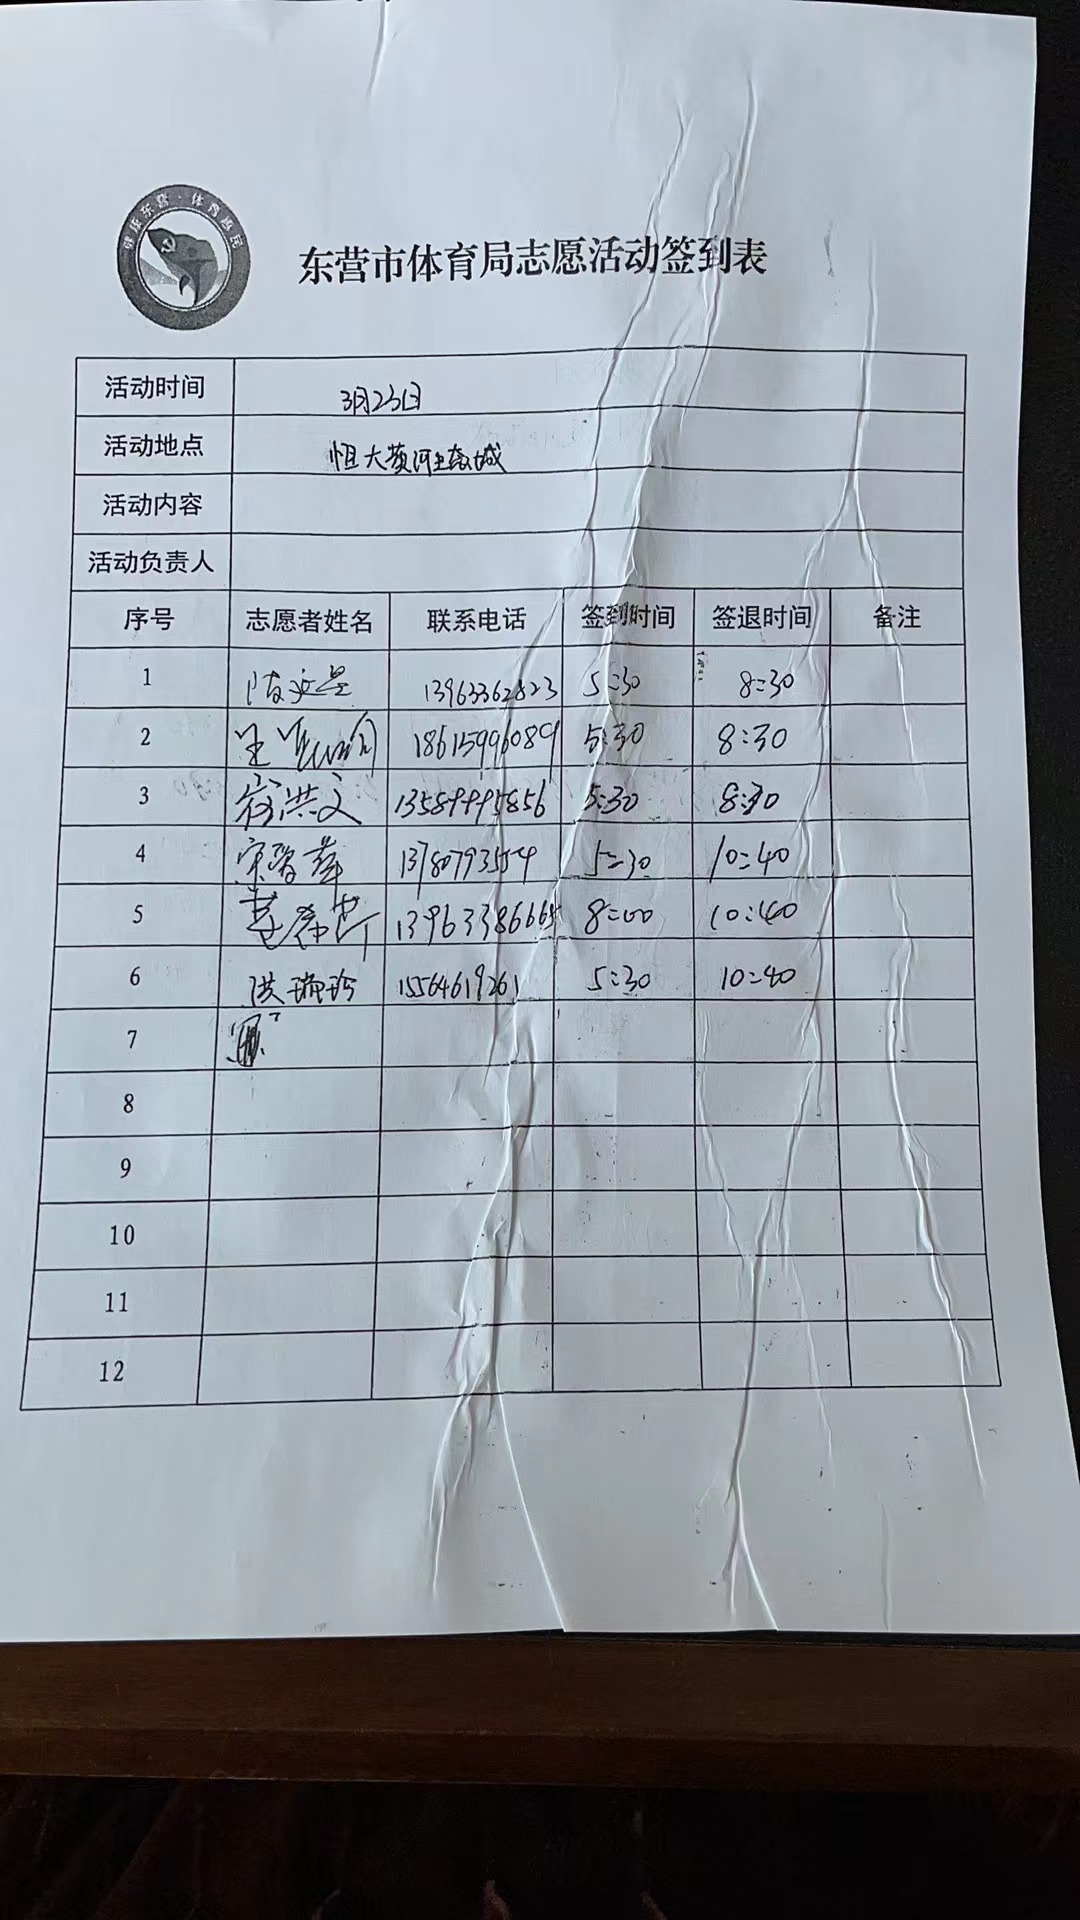 健康东营·体育惠民
东营市体育局志愿活动签到表
活动时间 3月23日
活动地点 恒大黄河生态城
活动内容
活动负责人
序号 志愿者姓名 联系电话 签到时间 签退时间 备注
1 13963362823 5:30 8:30
2 18615996089 5:30 8:30
3 崔洪文 13589995856 5:30 8:30
4 5:30 10:40
5 8:00 10:40
6 洪瑞玲 15564619261 5:30 10:40
7
8
9
10
11
12